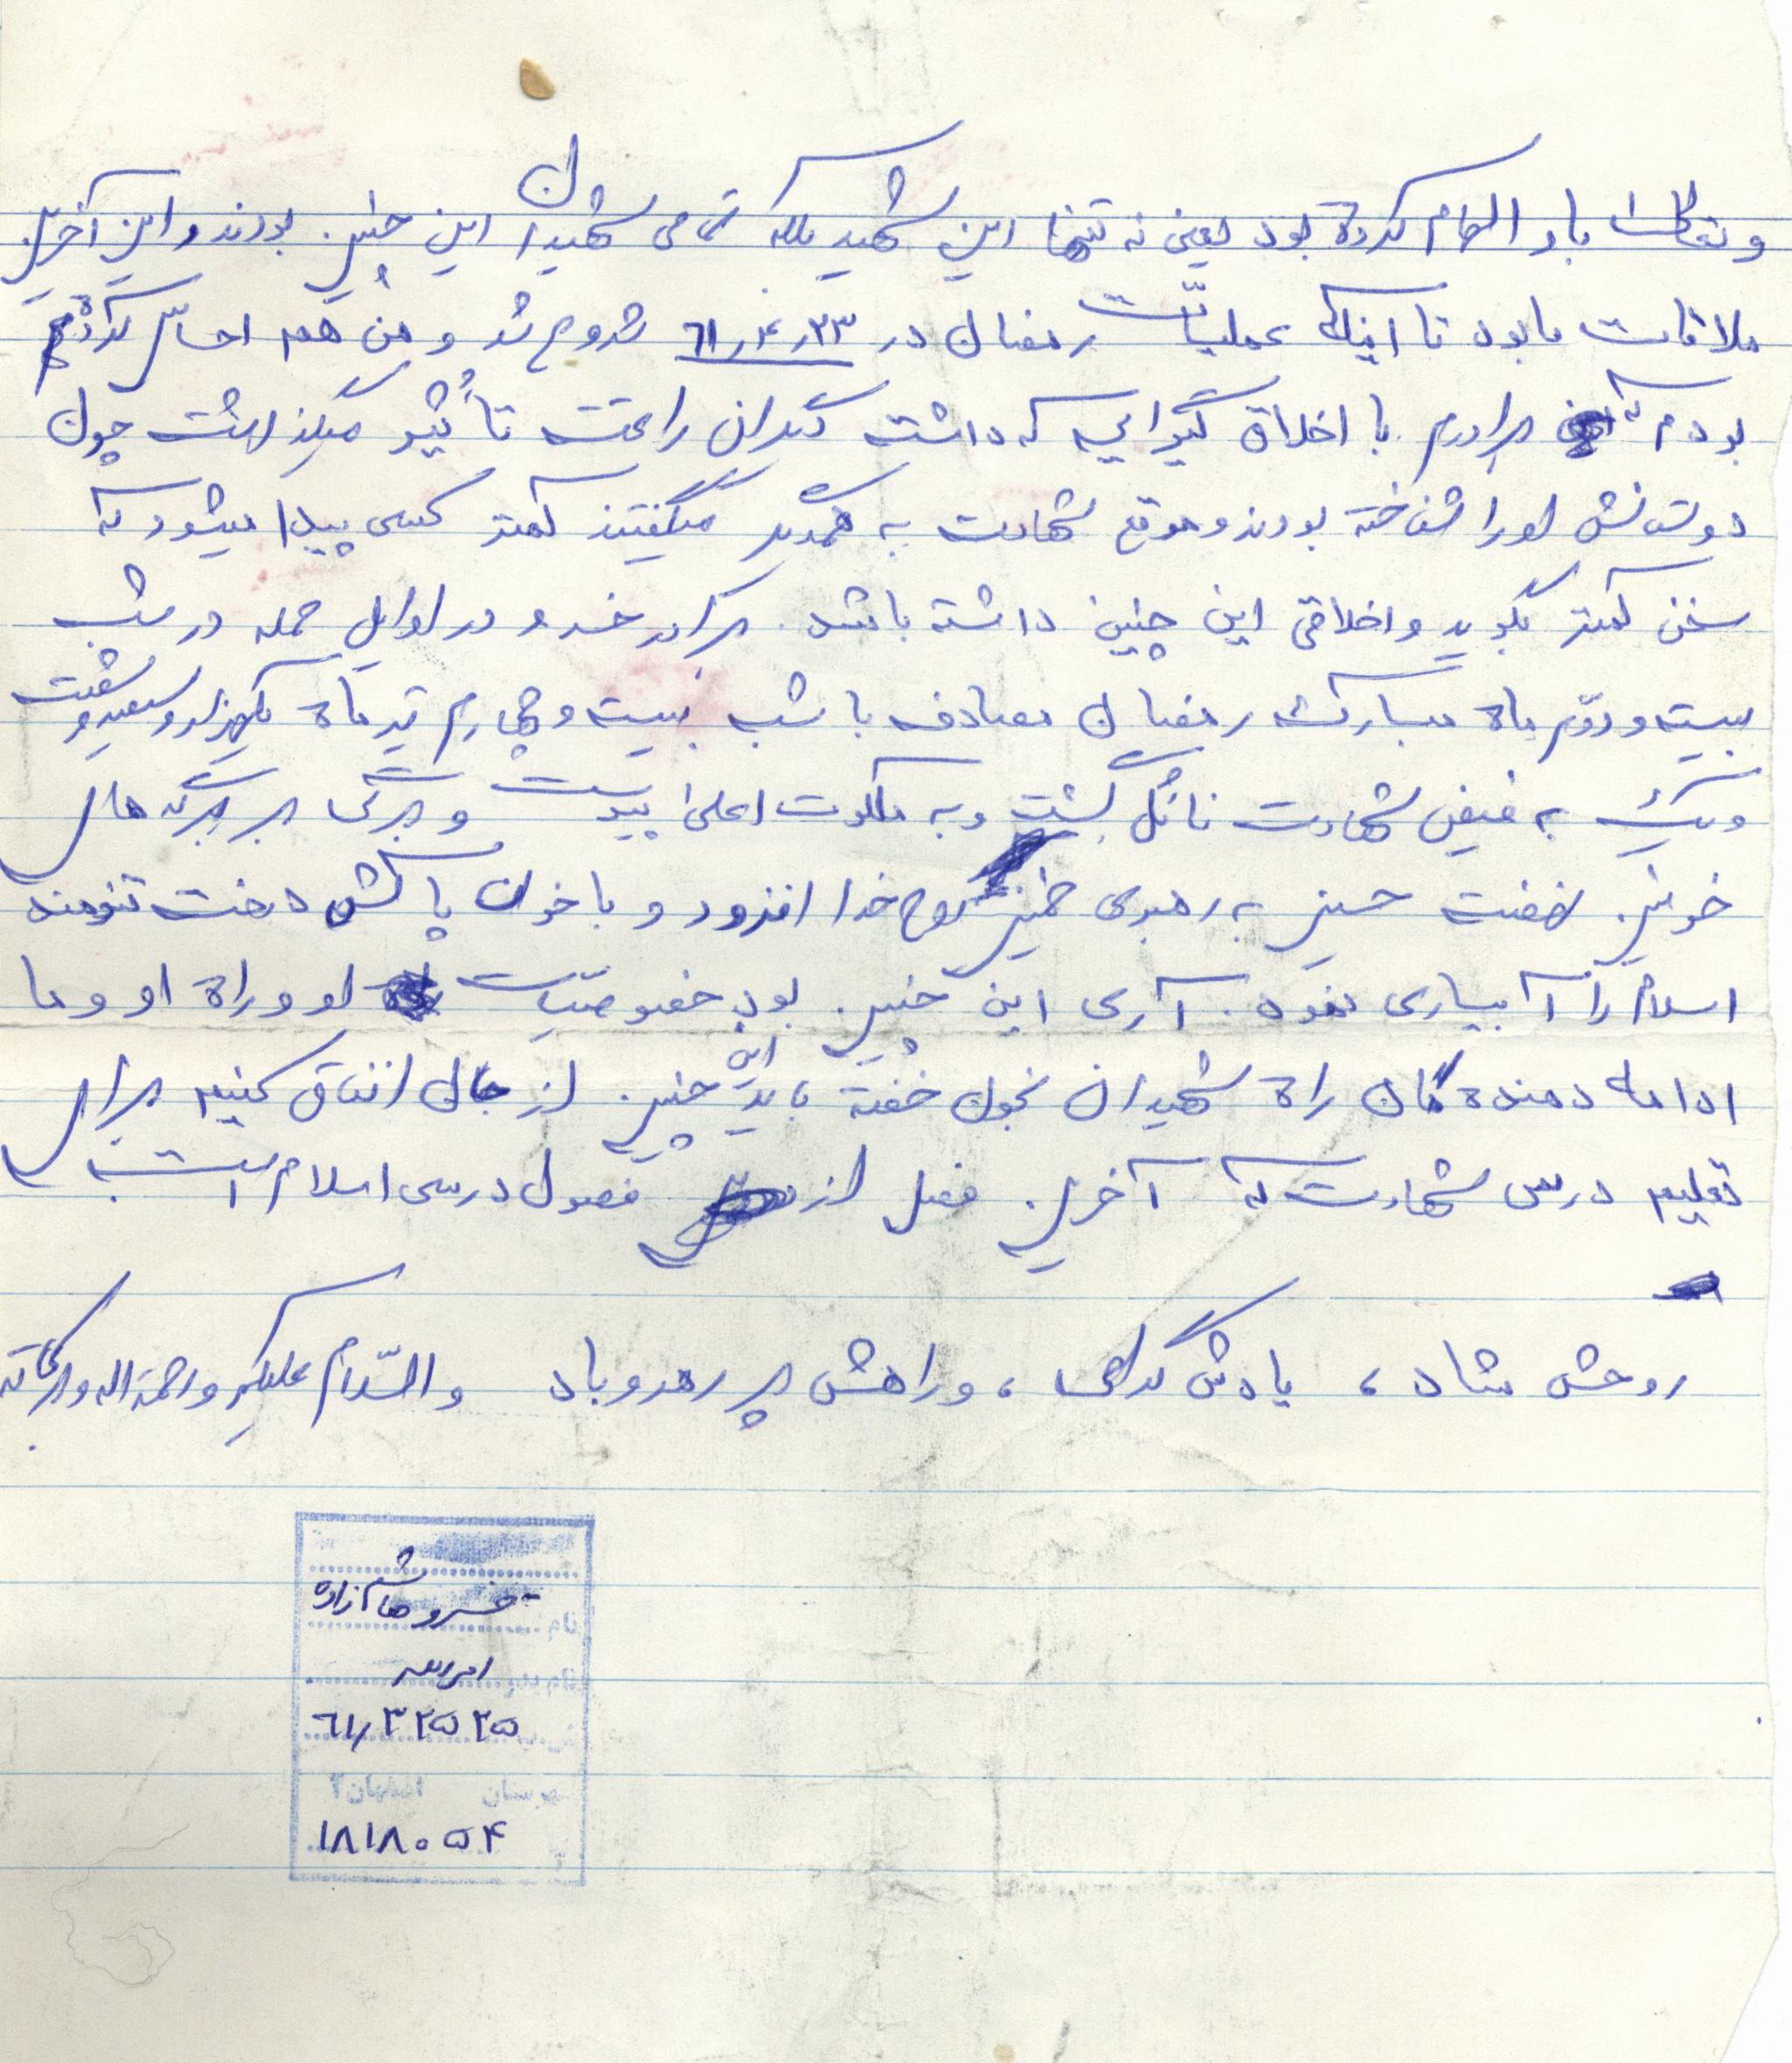 و تعالی باو الهام کرده بود یعنی نه تنها این شهید بلکه تمامی شهیدان این چنین بودند و این آخرین
ملاقات ما بود تا اینکه عملیات رمضان در ۶۱٫۴٫۲۳ شروع شد و من هم احساس کرده
بودم که برادرم با اخلاق گیرایی که داشت دیگران را تحت تأثیر میگذاشت چون
دوستانش او را شناخته بودند و موقع شهادت به همدیگر میگفتند کمتر کسی پیدا میشود که
سخن کمتر بگوید و اخلاقی این چنین داشته باشد. برادر خسرو در اوایل حمله در شب
بیست و دوّم ماه مبارک رمضان مصادف با شب بیست و چهارم تیر ماه یکهزار و سیصد و شصت
و یک به فیض شهادت نائل گشت و به ملکوت اعلی پیوست و برگی بر برگه های
خونین نهضت حسینی به رهبری خمینی روح خدا افزود و با خون پاکش درخت تنومند
اسلام را آبیاری نمود. آری این چنین بود خصوصیّات او و راه او و ما
ادامه دهنده گان راه شهیدان بخون خفته باید این چنین از جان انفاق کنیم برای
تعلیم درس شهادت که آخرین فصل از فصول درسی اسلام است
روحش شاد، یادش گرامی، و راهش پر رهرو باد والسّلام علیکم و رحمة اله و برکاته
خسرو هاشم زاده
۶۱٫۳۲۵۲۵
اصفهان ۲
۱۸۱۸۰۵۴